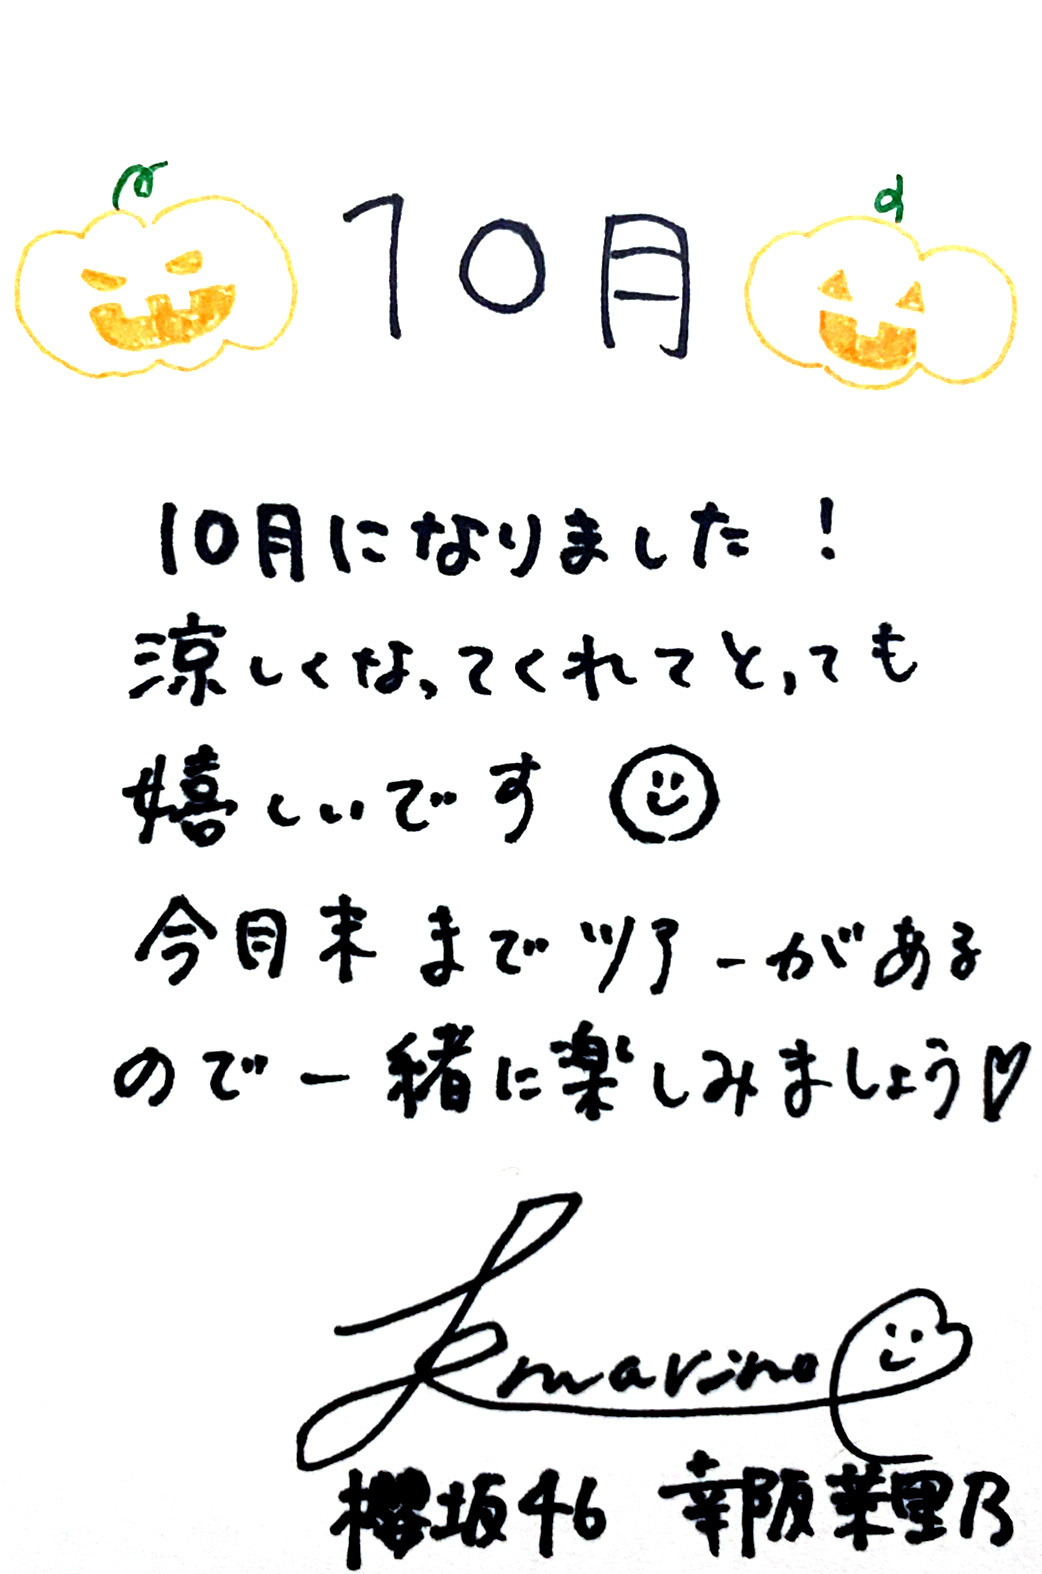 10月
10月になりました！
涼しくなってくれてとっても
嬉しいです
今月末までツアーがある
ので一緒に楽しみましょう♡
marino
櫻坂46 幸阪茉里乃